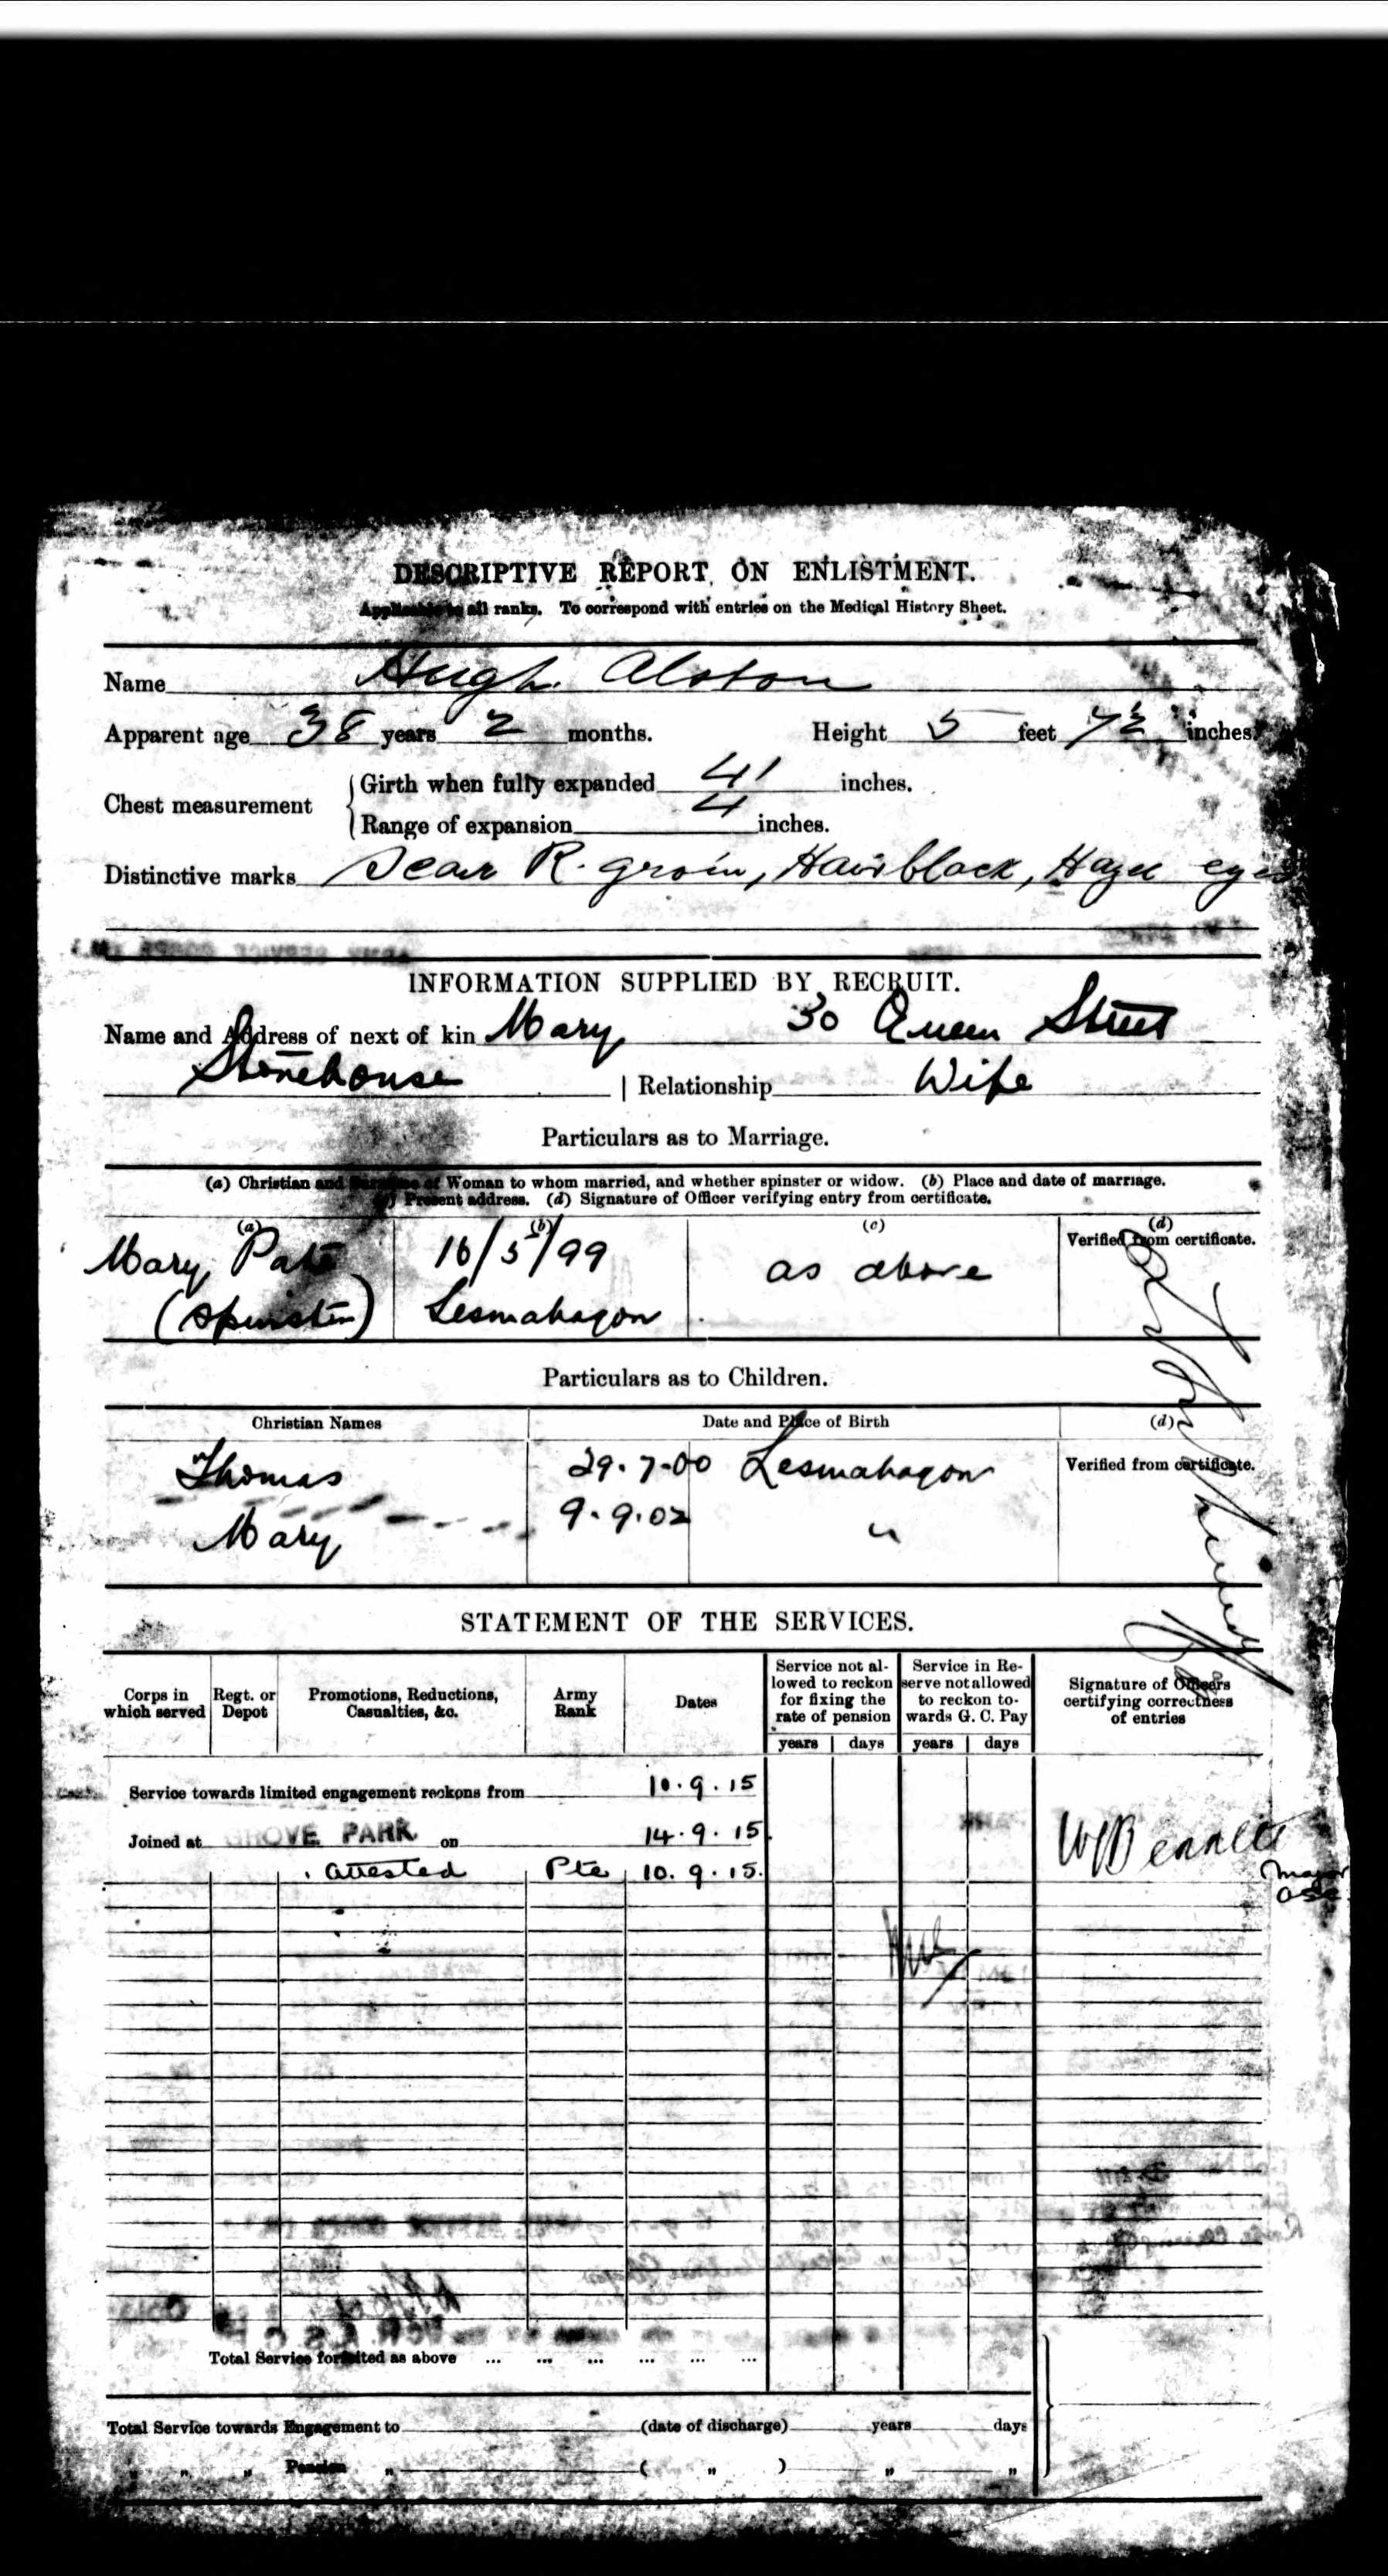 DESCRIPTIVE REPORT ON ENLISTMENT.
Applicable to all ranks. To correspond with entries on the Medical History Sheet.
Name Hugh Alston
Apparent age 38 years 2 months. Height 5 feet 7½ inches.
Chest measurement
Girth when fully expanded 41 inches.
Range of expansion 4 inches.
Distinctive marks Scar R. groin, Hair black, Hazel eyes
INFORMATION SUPPLIED BY RECRUIT.
Name and Address of next of kin Mary 30 Queen Street
Stonehouse | Relationship Wife
Particulars as to Marriage.
(a) Christian and Surname of Woman to whom married, and whether spinster or widow. (b) Place and date of marriage.
(c) Present address. (d) Signature of Officer verifying entry from certificate.
(a) (b) (c) (d)
Verified from certificate.
Mary Pate 16/5/99 as above
(Spinster) Lesmahagow
Particulars as to Children.
Christian Names Date and Place of Birth (d)
Thomas 29.7.00 Lesmahagow Verified from certificate.
Mary 9.9.02 "
STATEMENT OF THE SERVICES.
Corps in which served Regt. or Depot Promotions, Reductions, Casualties, &c. Army Rank Dates Service not allowed to reckon for fixing the rate of pension Service in Reserve not allowed to reckon towards G. C. Pay Signature of Officers certifying correctness of entries
years days years days
Service towards limited engagement reckons from 10.9.15
Joined at GROVE PARK on 14.9.15
W Bennett
Major
ASC.
attested Pte 10.9.15.
Total Service forfeited as above ... ... ... ... ... ...
Total Service towards Engagement to (date of discharge) years days
" " " Pension " ( " ) " "